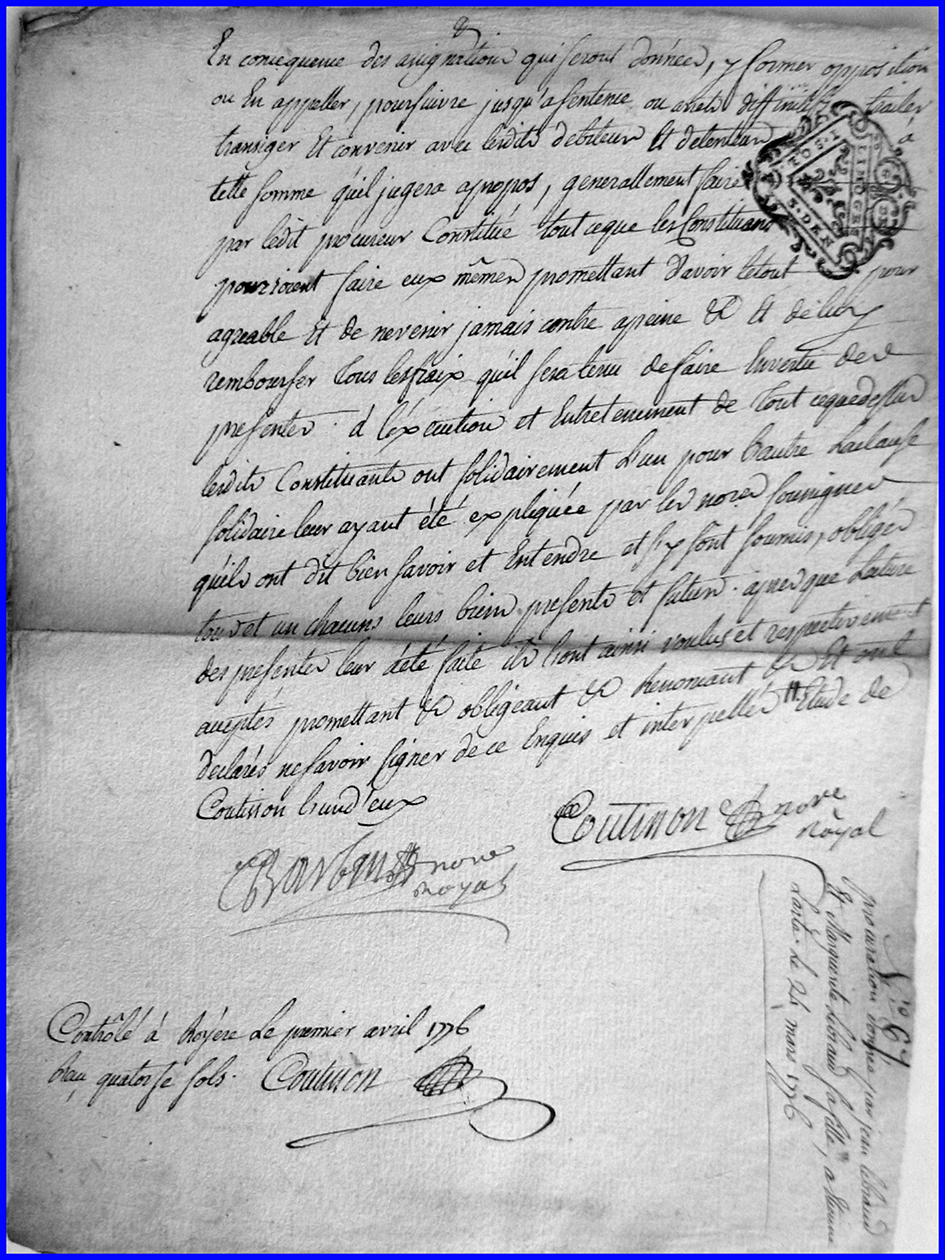 En consequence des assignations qui seront données, y former opposition
ou En appeller, poursuivre jusqu'a sentence ou arrets diffinitifs traiter
transiger Et convenir avec lesdits debiteurs Et detenteurs à
telle somme qu'il jugera apropos, generallement faire
par ledit procureur Constitué tout ceque les Constituants
pourroient faire eux mêmes promettant d'avoir letout pour
agreable Et de nevenir jamais contre apeine &c Et de luy
rembourser tous lesfraix qu'il sera tenu de faire Envertu des
presentes. à l'éxécution et Entretenement de tout cequedessus
lesdits Constituants ont solidairement l'un pour l'autre laclause
solidaire leur ayant été expliquée par les nores soussignes
qu'ils ont dit bien savoir et Entendre et s'y sont soumis, obligés
tous et un chacuns leurs biens presents et futurs. apres que lecture
des presentes leur aeté faite ils l'ont ainsi voulus et respectivement
aceptés promettant &c obligeant &c Renoncant &c Et ont
declarés nesavoir signer de ce Enquis et interpellés Etude de
Coutisson l'un d'eux
Coutisson nore
Royal
Barban nore
Royal
Contrôlé à Royére Le premier avril 1776
Reçu quatorse sols. Coutisson
N.o 67
procuration par jean
Et Marguerite sa fille, a
du 24 mars 1776
LIMOGES